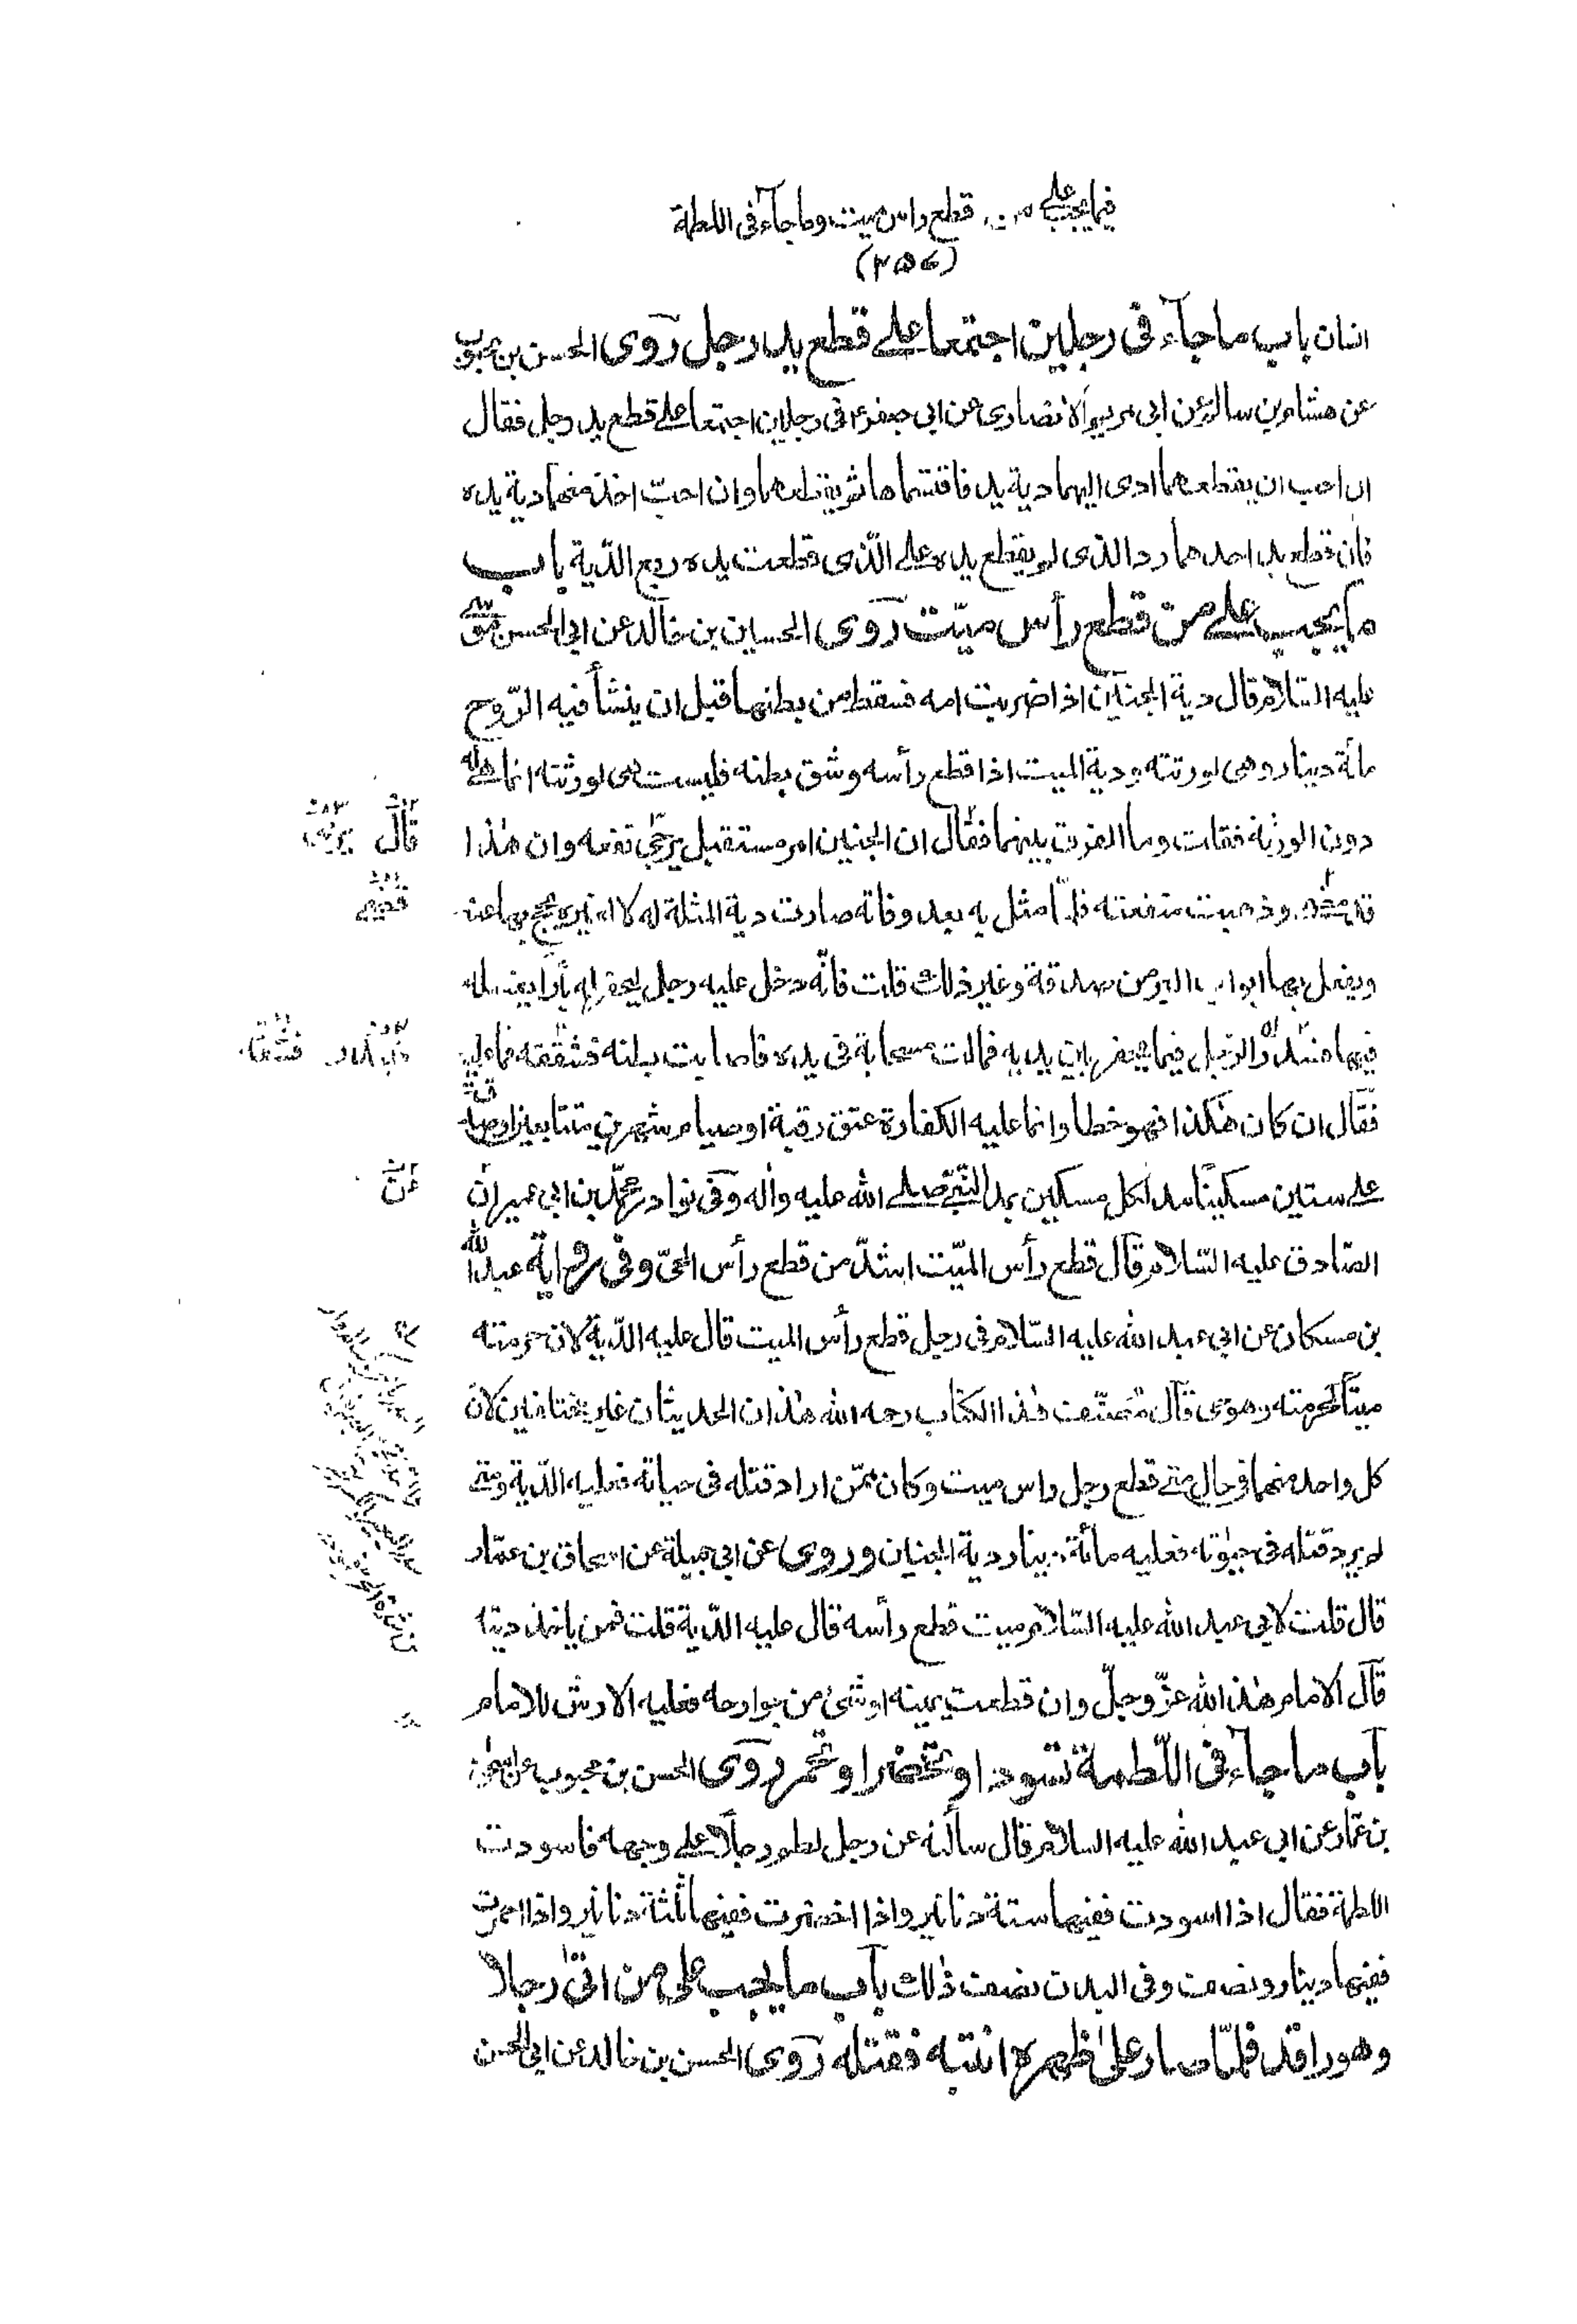 فيما يجب على من قطع راس ميت وما جاء فى اللطمة
(۳۵۶)
اثنان باب ما جاء فى رجلين اجتمعا على قطع يد رجل روى الحسن بن محبوب
عن هشام بن سالم عن ابى مريم الانصارى عن ابى جعفر ع فى رجلين اجتمعا على قطع يد رجل فقال
ان احب ان يقطعهما ادى اليهما دية يد فاقتسماها ثم يقطعهما وان احبّ اخذ منهما دية يده
فان قطع يد احدهما رد الذى لم يقطع يده على الّذى قطعت يده ربع الدّية باب
ما يجب على من قطع رأس ميّت روى الحسين بن خالد عن ابى الحسن موسى
عليه السّلام قال دية الجنين اذا ضربت امه فسقط من بطنها قبل ان ينشأ فيه الرّوح
مائة دينار وهى لورثته ودية الميت اذا قطع رأسه وشق بطنه فليست هى لورثته انما هى له
دون الورثة فقلت وما الفرق بينهما فقال ان الجنين امر مستقبل يرجى نفعه وان هذا
قد مضى وذهبت منفعته فلمّا مثل به بعد وفاته صارت دية المثلة له لا لغيره يحج بها عنه
ويفعل بها ابواب البر من صدقة وغير ذلك قلت فانّه دخل عليه رجل ليحفر له بئرا يغسله
فيها الرجل فيما يحفر بين يديه فمالت مسحاته فى يده فاصابت بطنه فشقّه فما عليه
فقال ان كان هكذا فهو خطا وانما عليه الكفارة عتق رقبة او صيام شهرين متتابعين او صدقة
على ستين مسكينا مد لكل مسكين بمد النّبىّ صلى الله عليه واله وفى نوادر محمّد بن ابى عمير ان
الصّادق عليه السّلام قال قطع رأس الميّت اشدّ من قطع رأس الحىّ وفى رواية عبد الله
بن مسكان عن ابى عبد الله عليه السّلام فى رجل قطع رأس الميت قال عليه الدّية لان حرمته
ميتا كحرمته وهو حى قال مصنّف هذا الكتاب رحمه الله هذان الحديثان غير مختلفين لان
كل واحد منهما فى حال متى قطع رجل راس ميت وكان ممّن اراد قتله فى حياته فعليه الدّية ومتى
لم يرد قتله فى حيوته فعليه مائة دينار دية الجنين وروى عن ابى جميلة عن اسحاق بن عمّار
قال قلت لابى عبد الله عليه السّلام ميت قطع رأسه قال عليه الدّية قلت فمن ياخذ ديته
قال الامام هذا لله عزّ وجلّ وان قطعت يمينه او شئ من جوارحه فعليه الارش للامام
باب ما جاء فى اللّطمة تسود او تخضر او تحمر روى الحسن بن محبوب عن اسحق
بن عمّار عن ابى عبد الله عليه السلام قال سألته عن رجل لطم رجلا على وجهه فاسودت
اللطمة فقال اذا اسودت ففيها ستة دنانير واذا اخضرت ففيها ثلثة دنانير واذا احمرت
ففيها دينار ونصف وفى البدن نصف ذلك باب ما يجب على من اتى رجلا
وهو راقد فلمّا صار على ظهره انتبه فقتله روى الحسن بن خالد عن ابى الحسن
قال يرجى
عن